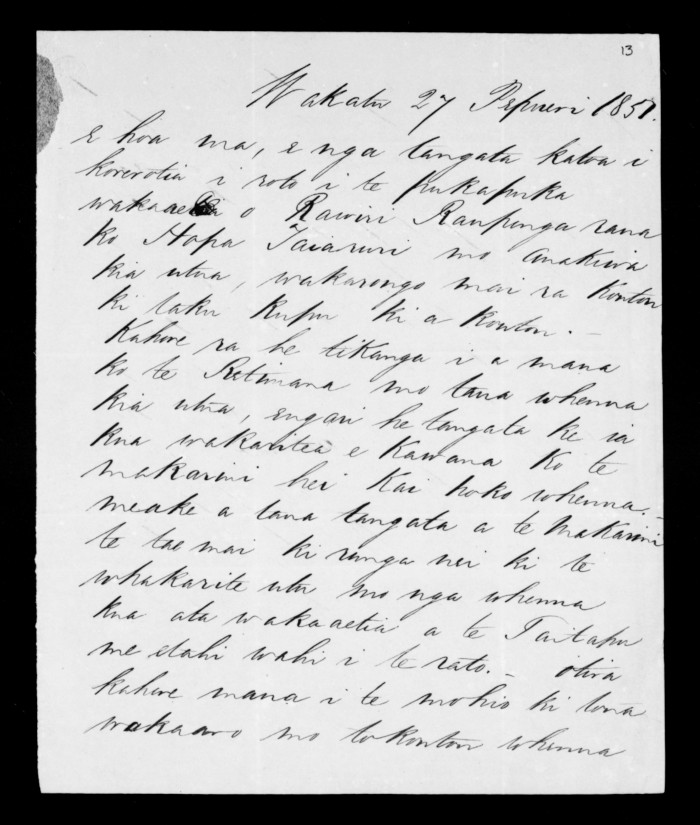 13
Wakatu 27 Pepueri 1857.
E hoa ma, e nga tangata katoa i
korerotia i roto i te pukapuka
wakaaetia o Rawiri Raupunga raua
ko Hopa Taiaruri mo Anakiwa
kia utua, wakarongo mai ra Koutou
ki taku kupu ki a koutou. _
Kahore ra he tikanga i a mana
ko te Retimana mo tana whenua
kia utua, engari he tangata ke ia
kua wakaritea e Kawana ko te
makarini hei Kai hoko whenua. _
meake a tana tangata a te Makarini
te tae mai ki runga nei ki te
whakarite utu mo nga whenua
kua ata wakaaetia a te Taitapu
me etahi wahi i te rato. _ otira
kahore mana i te mohio ki tona
wakaaro mo to koutou whenua